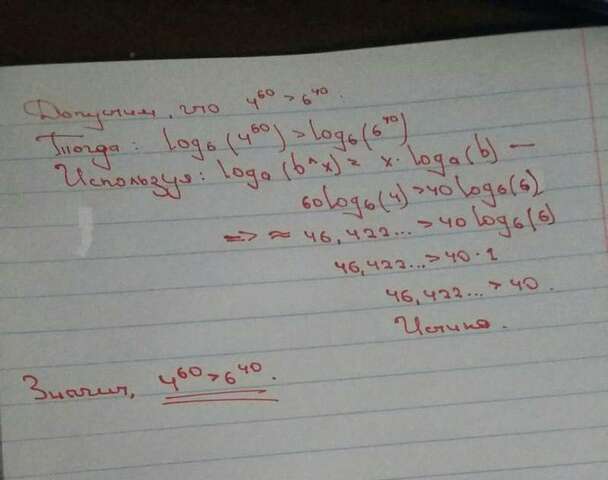 Допустим, что 4^60 > 6^40.
Тогда: log₆(4^60) > log₆(6^40)
Используя: logₐ(b^x) = x · logₐ(b) —
60 log₆(4) > 40 log₆(6)
=> ≈ 46,422... > 40 log₆(6)
46,422... > 40 · 1
46,422... > 40.
Истина.
Значит, 4^60 > 6^40.